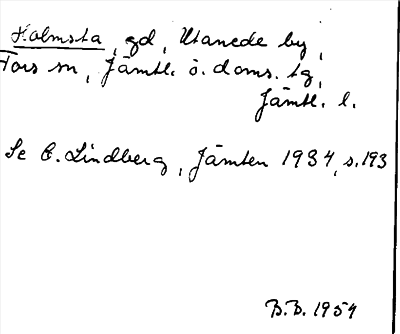 Holmsta, gd, Utanede by,
Fors sn, Jämtl. ö. doms. tg,
Jämtl. l.
Se E. Lindberg, Jämten 1934, s. 193
B.B. 1954